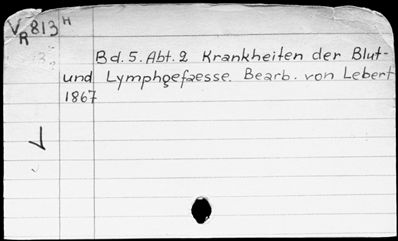 V R 813 H
Bd. 5. Abt. 2 Krankheiten der Blut-
und Lymphgefaesse. Bearb. von Lebert
1867